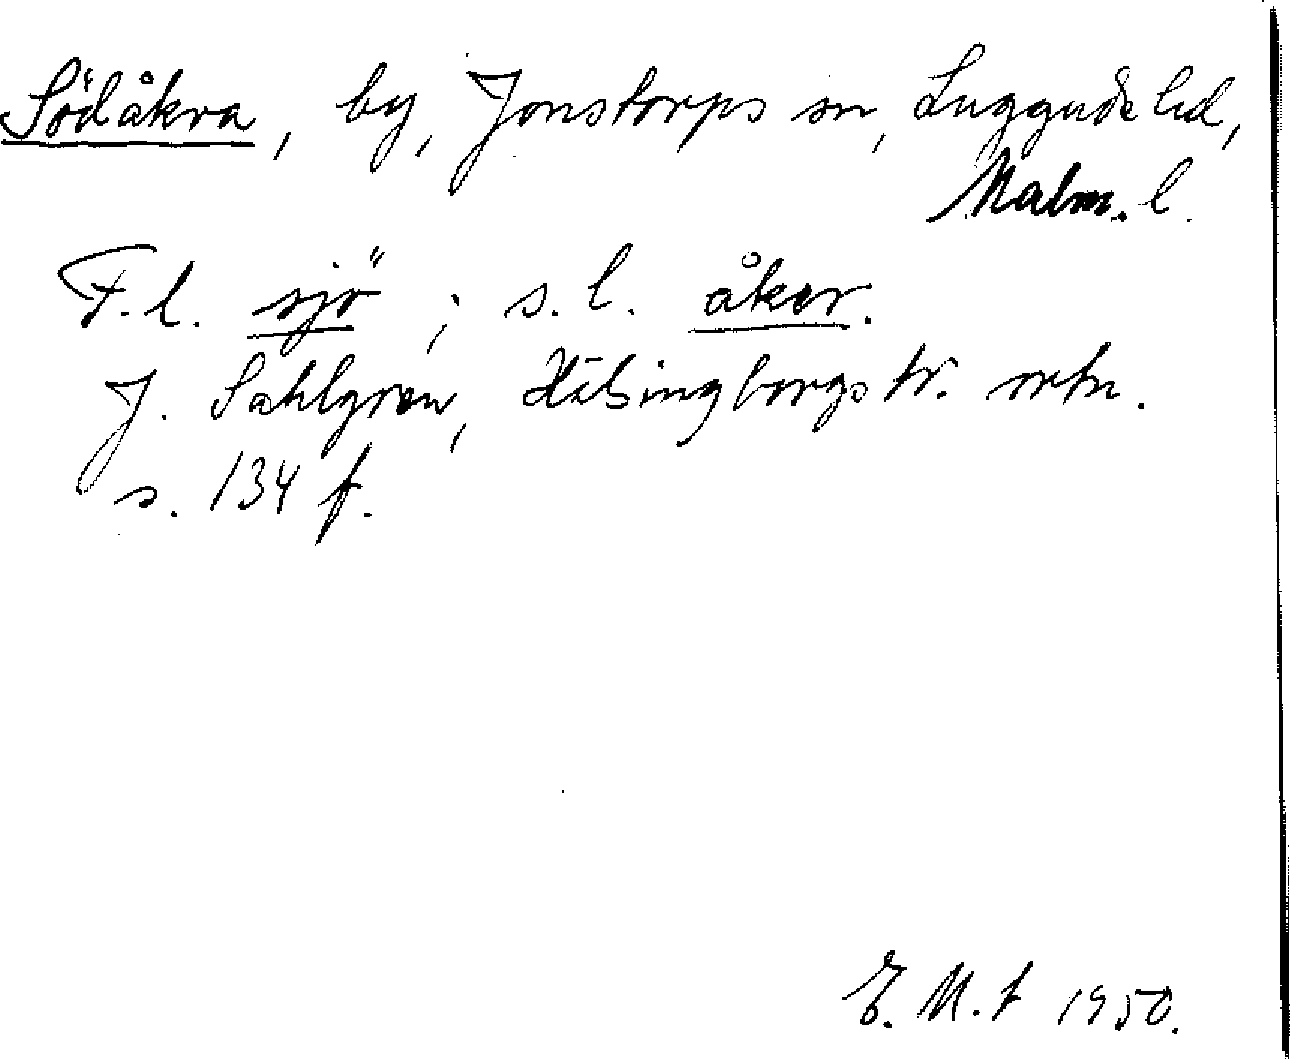 Södåkra, by, Jonstorps sn, Luggude hd,
Malm. l.
F.l. sjö ; s.l. åker.
J. Sahlgren, Hälsingborgstr. ortn.
s. 134 f.
E. M. t 1950.